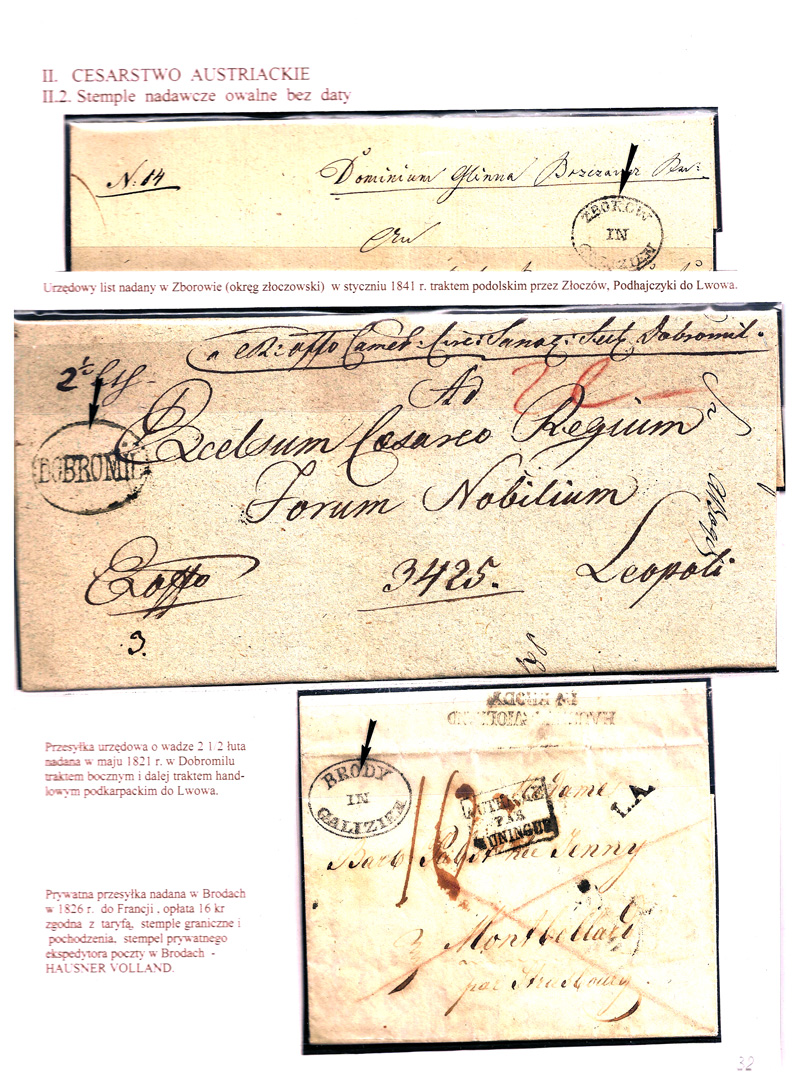 II. CESARSTWO AUSTRIACKIE
II.2. Stemple nadawcze owalne bez daty
N: 14
Dominium Glinna Brzezaner
ZBOROW
IN
GALIZIEN
An
Urzędowy list nadany w Zborowie (okręg złoczowski) w styczniu 1841 r. traktem podolskim przez Złoczów, Podhajczyki do Lwowa.
Dobromil
2½
Ad
DOBROMIL
Excelsum Cesareo Regium
Forum Nobilium
Exoffo
3425.
Leopoli
3.
Przesyłka urzędowa o wadze 2 1/2 łuta
nadana w maju 1821 r. w Dobromilu
traktem bocznym i dalej traktem hand-
lowym podkarpackim do Lwowa.
HAUSNER VIOLLAND
IN BRODY
BRODY
IN
GALIZIEN
16
AUTRICHE
PAR
HUNINGUE
L.A.
Jenny
Montbeliard
par Strasbourg
Prywatna przesyłka nadana w Brodach
w 1826 r. do Francji , opłata 16 kr
zgodna z taryfą, stemple graniczne i
pochodzenia, stempel prywatnego
ekspedytora poczty w Brodach -
HAUSNER VOLLAND.
32